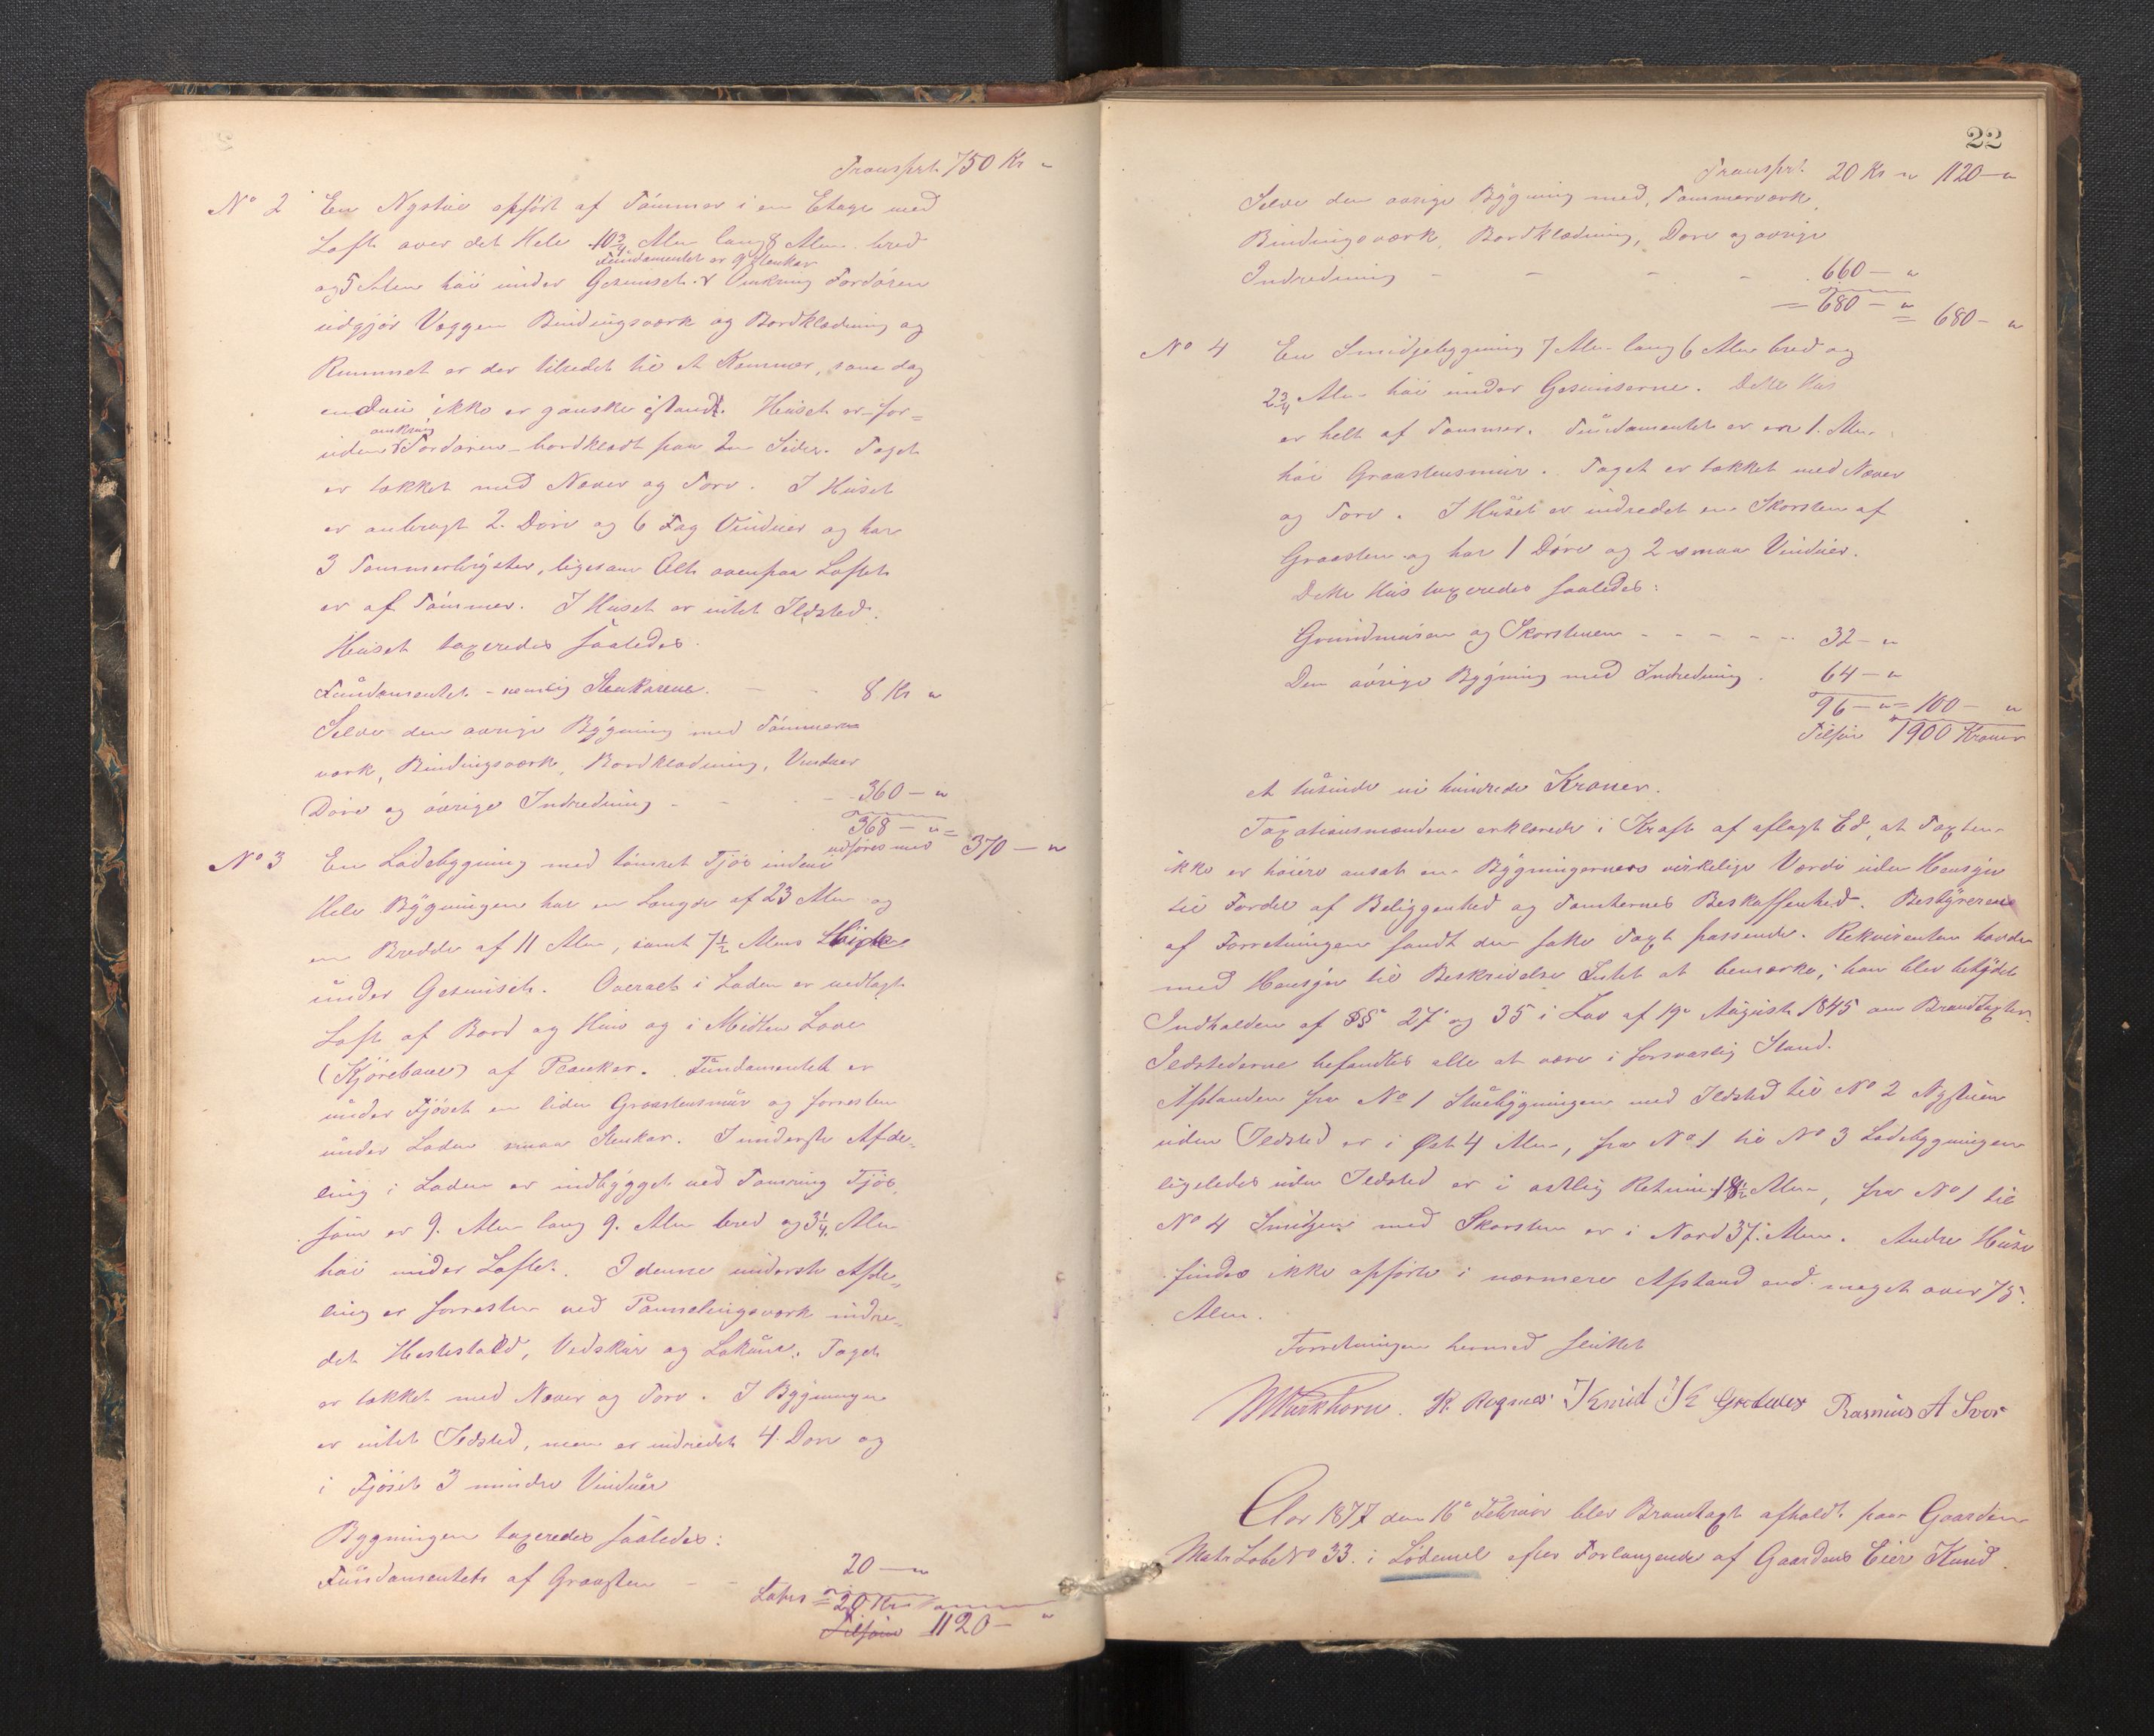 Transprt. 750 Kr "
No 2 En Nystue opført af Tømmer i en Etage med
Loft over det Hele 10 3/4 Alen lang 8 Alen bred
Fundamentet er 9 Stenkar
og 5 Alen høi under Gesimset. Omkring Fordøren
udgjør Væggen Bindingsværk og Bordklædning og
Rummet er der tilredet til et Kammer, som dog
endnu ikke er ganske istand. Huset er for=
omkring
uden Fordøren bordklædt paa 2 Sider. Taget
er tækket med Næver og Torv. I Huset
er anbragt 2 Døre og 6 Fag Vinduer og har
3 Tømmerbryster, ligesom Alt ovenpaa Loftet
er af Tømmer. I Huset er intet Ildsted.
Huset taxeredes saaledes.
Fundamentet - nemlig Stenkarene. - - 8 Kr "
Selve den øvrige Bygning med Tømmer
værk, Bindingsværk, Bordklædning, Vinduer
Døre og øvrige Indredning - - - 360 - "
368 - " =
udføres med 370 - "
No 3 En Ladebygning med tømret Fjøs indeni
Hele Bygningen har en Længde af 23 Alen og
en Bredde af 11 Alen, samt 7 1/2 Alens Høide
under Gesimset. Overalt i Laden er nedlagt
Loft af Bord og Hun og i Midten Lave
(Kjørebane) af Planker. Fundamentet er
under Fjøset en liden Graastensmur og forresten
under Laden smaa Stenkar. I underste Afde-
ling i Laden er indbygget ved Tømring Fjøs,
som er 9. Alen lang 9. Alen bred og 3 1/4 Alen
høi under Loftet. I denne underste Afde-
ling er forresten ved Pannelingsværk indre-
det Hestestald, Vedskur og Taget
er tækket med Næver og Torv. I Bygningen
er intet Ildsted, men er indredet 4 Døre og
i Fjøset 3 mindre Vinduer
Bygningen taxeredes saaledes:
Fundamentet af Graasten - - 20 - "
Latus = 20 Kr
Tilsam 1120 - "
22
Transprt. 20 Kr " 1120 - "
Selve den øvrige Bygning med Tømmerværk,
Bindingsværk, Bordklædning, Døre og øvrige
Indredning - - - - 660 - "
= 680 - " = 680 - "
No 4 En Smidjebygning 7 Alen lang 6 Alen bred og
2 3/4 Alen høi under Gesimserne. Dette Hus
er helt af Tømmer. Fundamentet er en 1. Alen
høi Graastensmur. Taget er tækket med Næver
og Torv. I Huset er indredet en Skorsten af
Graasten og har 1 Døre og 2 smaa Vinduer.
Dette Hus taxeredes saaledes:
Grundmuren og Skorstenen - - - - - 32 - "
Den øvrige Bygning med Indredning. 64 - "
96 - " = 100 - "
Tilsam 1900 Kroner
et tusinde ni hundrede Kroner.
Taxationsmændene erklærede i Kraft af aflagt Ed, at Taxten
ikke er høiere ansat en Bygningernes virkelige Værdi uden Hensyn
til Fordel af Beliggenhed og Tomternes Beskaffenhed. Bestyreren
af Forretningen fandt den satte Taxt passende. Rekvirenten havde
med Hensyn til Beskrivelse Intet at bemærke; han blev betydet
Indholden af §§ 27 og 35 i Lov af 19de August 1845 om Brandtaxter.
Ildstederne befandtes alle at være i forsvarlig Stand.
Afstanden fra No 1 Stuebygningen med Ildsted til No 2 Nystuen
uden Ildsted er i Øst 4 Alen, fra No 1 til No 3 Ladebygningen
ligeledes uden Ildsted er i østlig Retning 18 1/2 Alen, fra No 1 til
No 4 Smidjen med Skorsten er i Nord 37. Alen. Andre Huse
findes ikke opførte i nærmere Afstand end meget over 75.
Alen.
Forretningen hermed sluttet
K. Rognes Knud K Rasmus A Svor
Aar 1877 den 16de Februar blev Brandtaxt afholdt paa Gaarden
Matr Løbe No 33. i Lødemel efter Forlangende af Gaardens Eier Knud